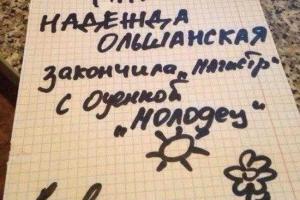 НАДЕЖДА
ОЛЬШАНСКАЯ
закончила „магистр"
с оценкой
„МОЛОДЕЦ"